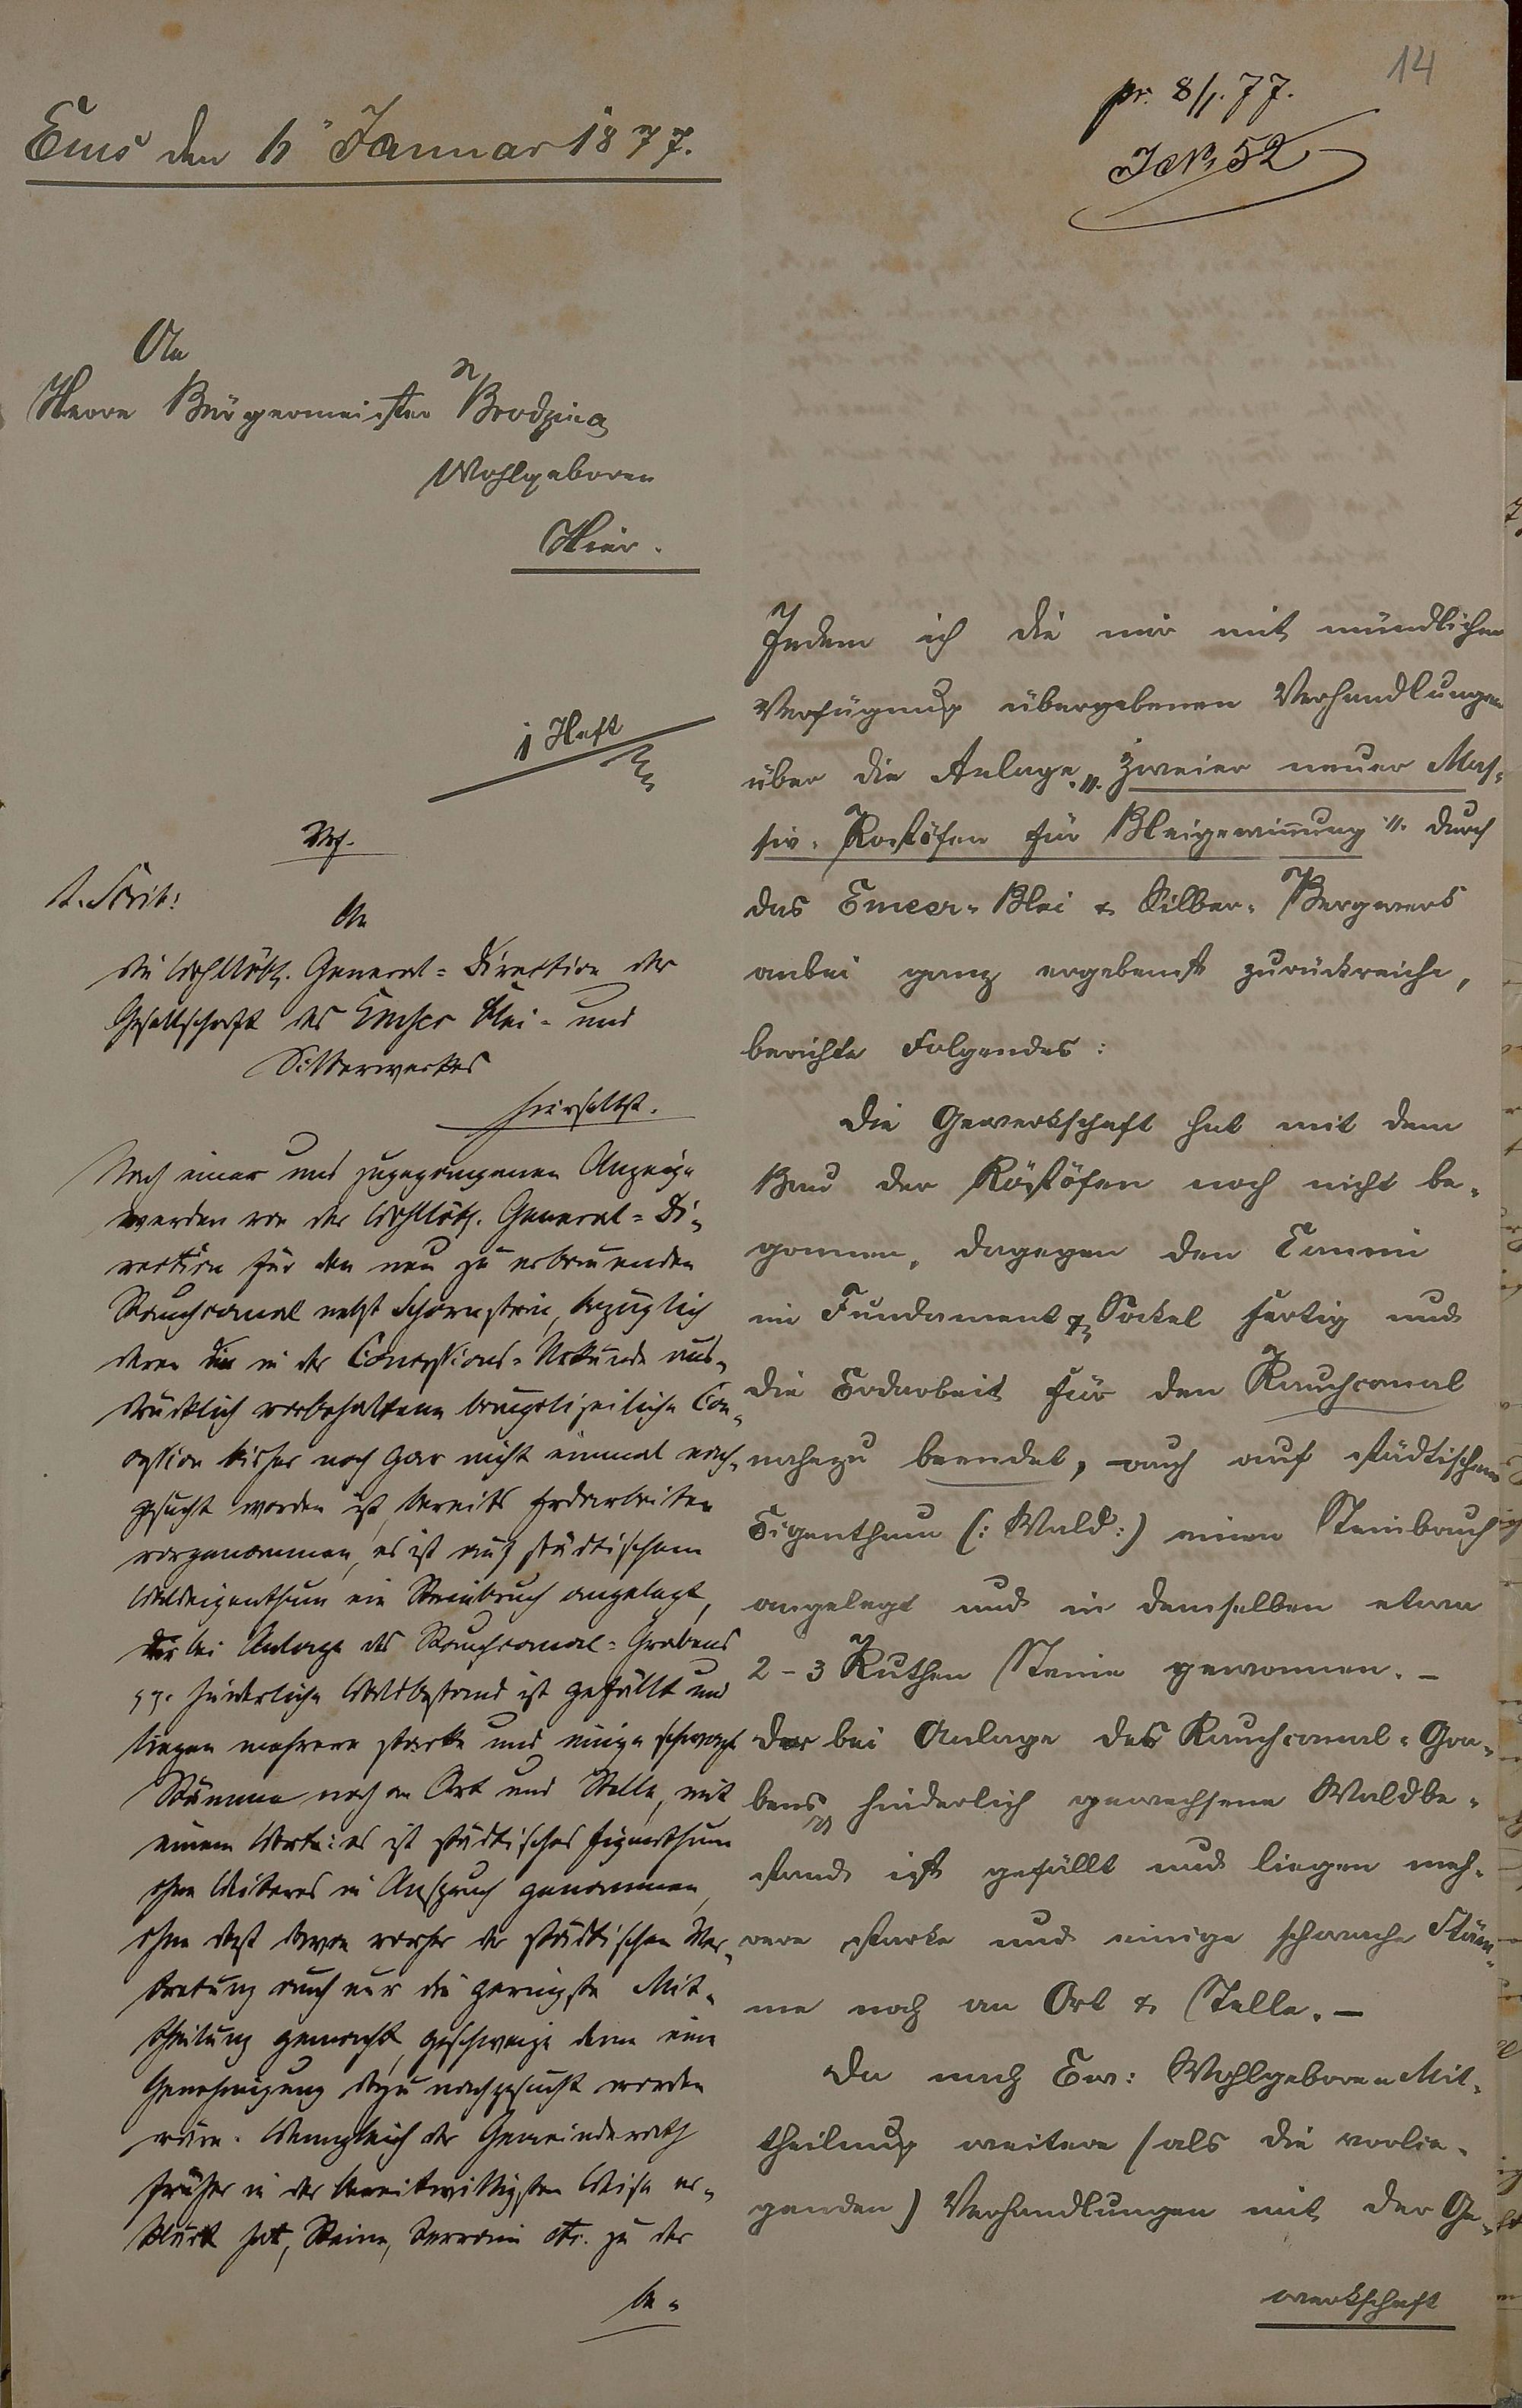 14
pr. 8/1. 77.
JNr. 52
Ems den 6ten Januar 1877.
An
Herrn Bürgermeister Brodzina
Wohlgeboren
Hier.
1 Heft
Indem ich die mir mit mündlicher
Verfügung übergebenen Verhandlungen
über die Anlage „zweier neuer Mas-
siv-Rostöfen für Bleigewinnung" durch
das Emser-Blei & Silber-Bergwerk
anbei ganz ergebenst zurückreiche,
berichte Folgendes:
Die Gewerkschaft hat mit dem
Bau der Röstöfen noch nicht be-
gonnen, dagegen den Camin
im Fundament & Sockel fertig und
die Erdarbeit für den Rauchcanal
nahezu beendet, auch auf städtischem
Eigenthum (: Wald :) einen Steinbruch
angelegt und in demselben etwa
2-3 Ruthen Steine gewonnen. -
Der bei Anlage des Rauchcanal-Gra-
bens hinderlich gewachsene Waldbe-
stand ist gefällt und liegen meh-
rere starke und einige schwache Stäm-
me noch an Ort & Stelle. -
Da nach Ew: Wohlgeboren Mit-
theilung weitere (als die vorlie-
genden) Verhandlungen mit der Ge-
werkschaft
Vf.
1. Schrb:
An
die Wohllöbl. General-Direktion der
Gesellschaft des Emser Blei- und
Silberwerkes
hierselbst.
Nach einer uns zugegangenen Anzeige
werden von der Wohllöbl. General-Di-
rection für den neu zu erbauenden
Rauchcanal nebst Schornstein, bezüglich
deren die in der Concessions-Urkunde aus-
drücklich vorbehaltene baupolizeiliche Con-
cession bisher noch gar nicht einmal nach-
gesucht worden ist, bereits Erdarbeiten
vorgenommen, es ist auf städtischem
Waldeigenthum ein Steinbruch angelegt,
der bei Anlage des Rauchcanal-Grabens
hinderliche Waldbestand ist gefällt und
liegen mehrere starke und einige schwache
Stämme noch an Ort und Stelle, mit
einem Worte: es ist städtisches Eigenthum
ohne Weiteres in Anspruch genommen,
ohne daß davon vorher der städtischen Ver-
tretung auch nur die geringste Mit-
theilung gemacht, geschweige denn eine
Genehmigung dazu nachgesucht worden
wäre. Wenngleich der Gemeinderath
früher in der bereitwilligsten Weise er-
klärt hat, Steine, Terrain etc. zu der
be-